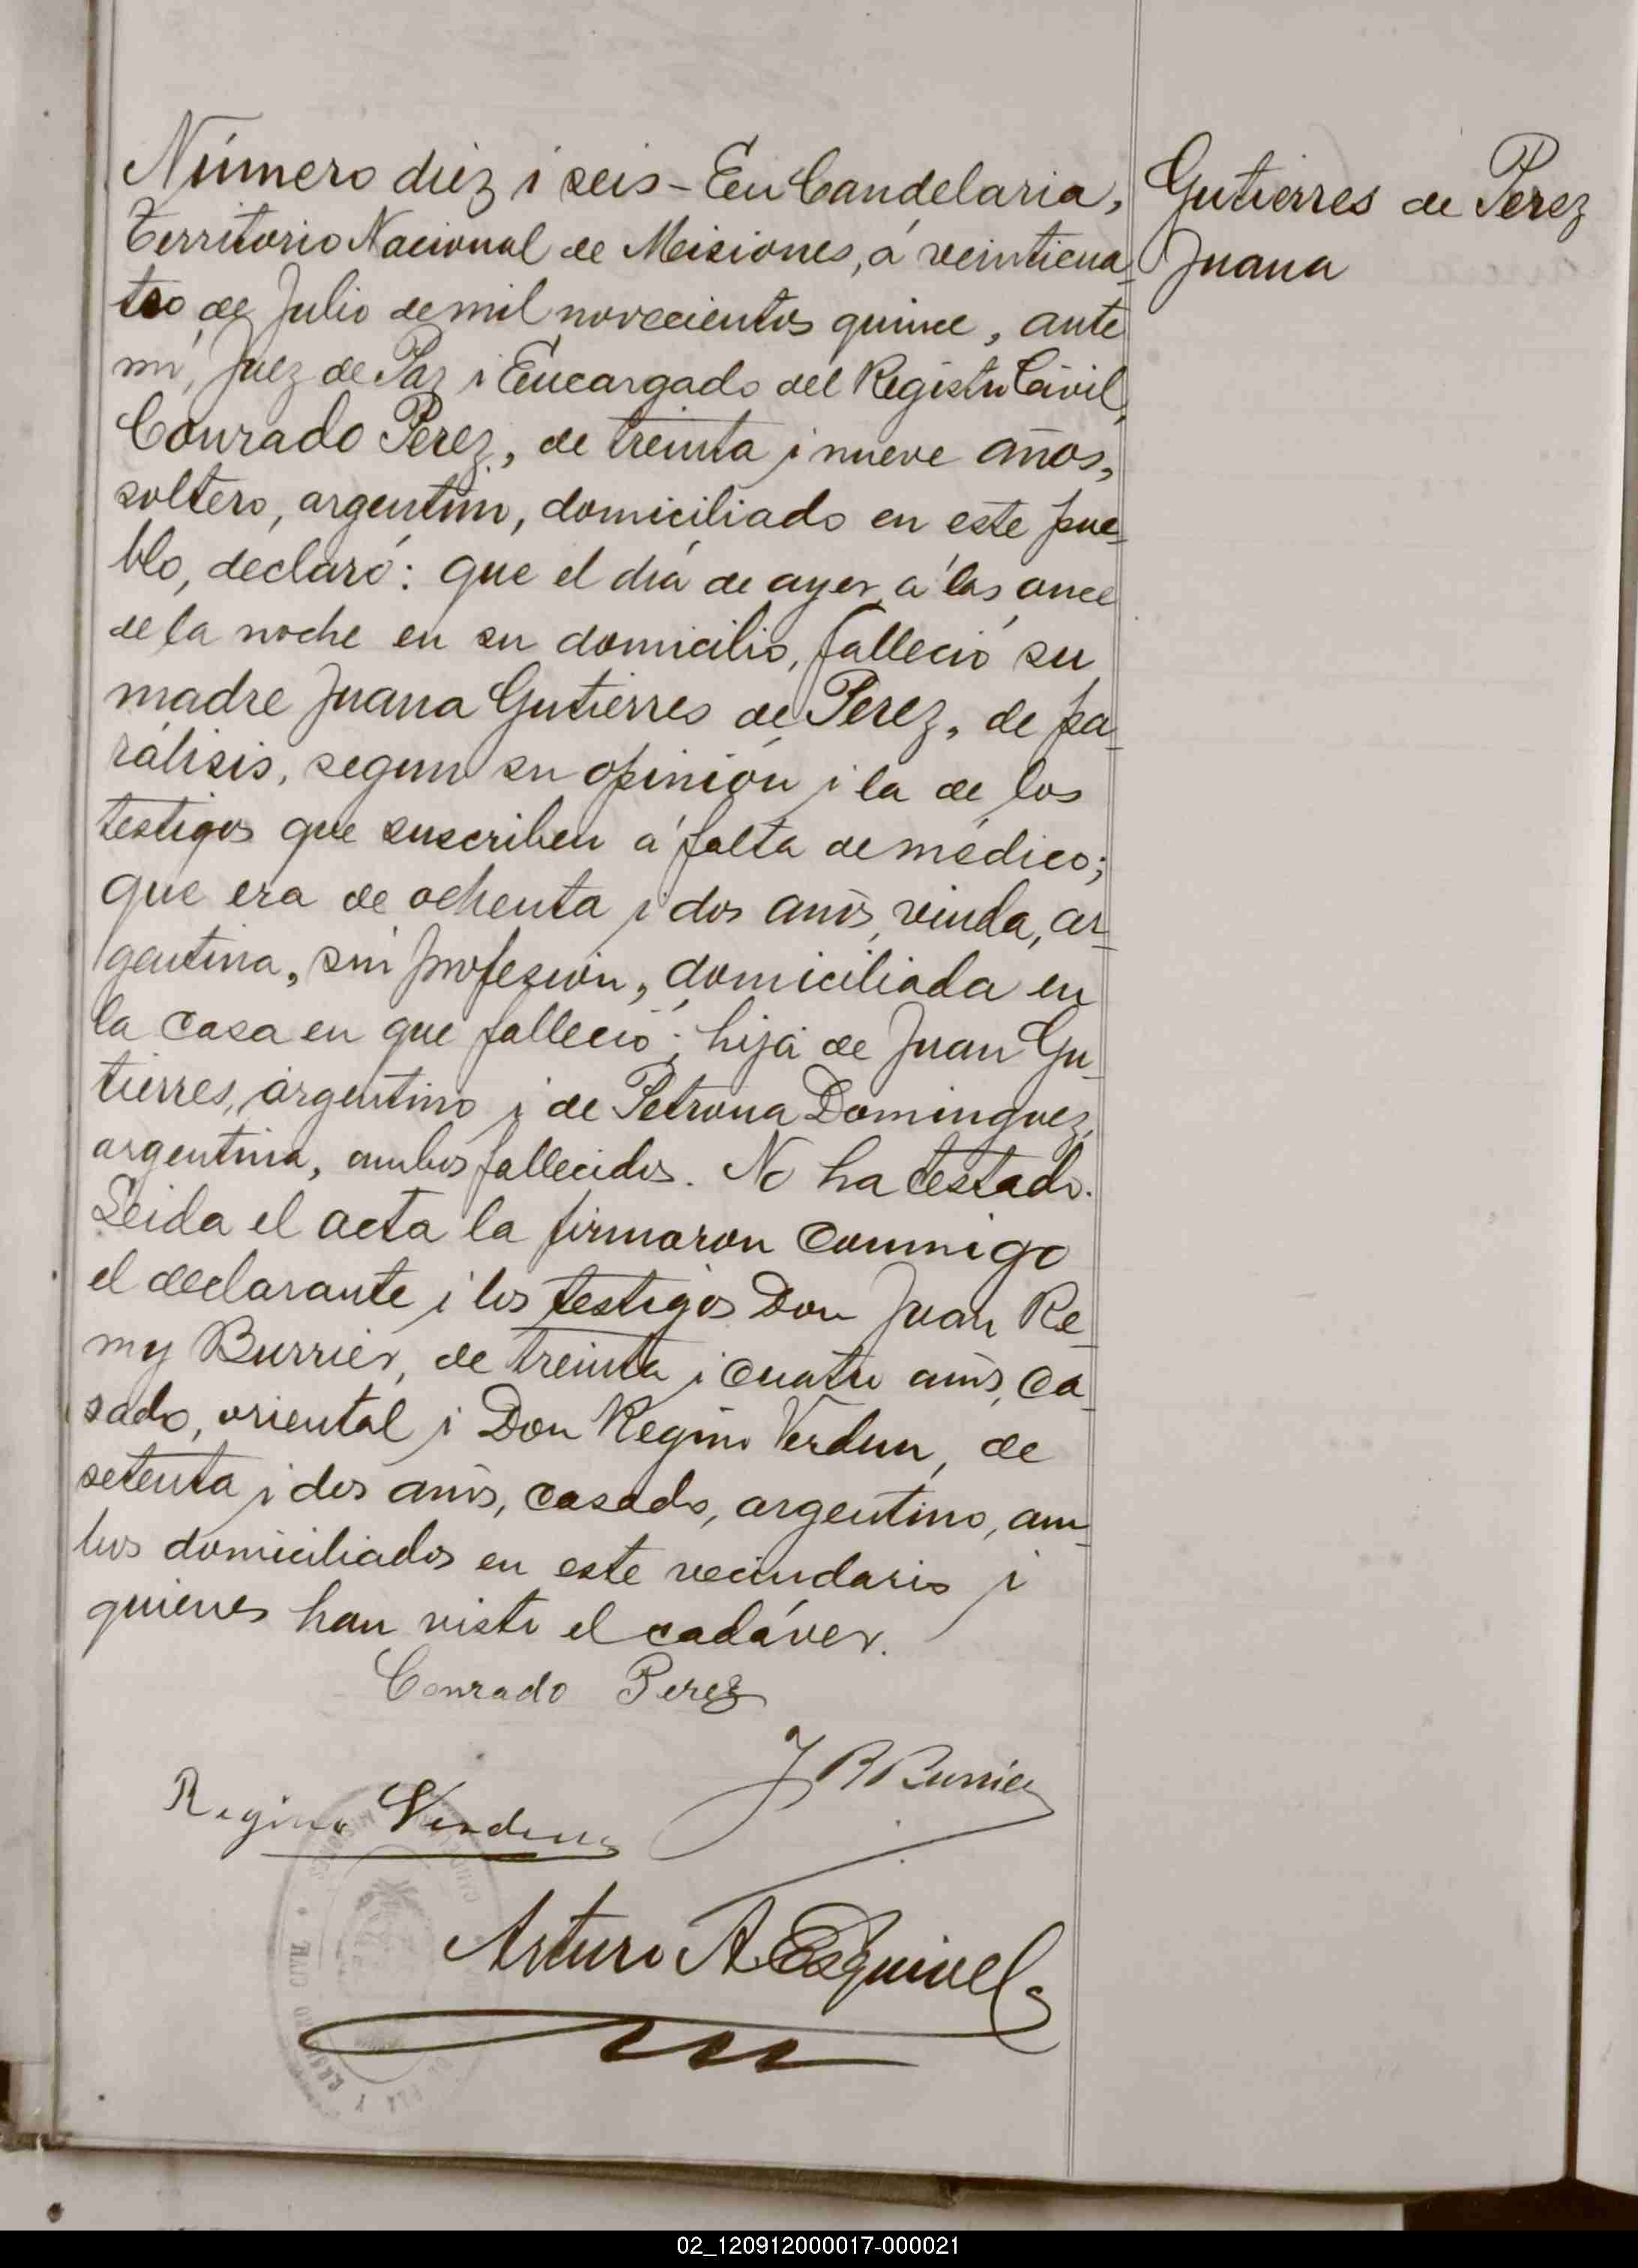 Número diez i seis - En Candelaria,
Territorio Nacional de Misiones, á veinticua-
tro de Julio de mil novecientos quince, ante
mí, Juez de Paz i Encargado del Registro Civil,
Conrado Perez, de treinta i nueve años,
soltero, argentino, domiciliado en este pue-
blo, declaró: que el día de ayer á las once
de la noche en su domicilio, falleció su
madre Juana Gutierres de Perez, de pa-
rálisis, segun su opinión i la de los
testigos que suscriben á falta de médico;
que era de ochenta i dos años, viuda, ar-
gentina, sin profesión, domiciliada en
la casa en que falleció; hija de Juan Gu-
tierres, argentino i de Petrona Dominguez,
argentina, ambos fallecidos. No ha testado.
Leida el acta la firmaron conmigo
el declarante i los testigos Don Juan Re-
my Burrier, de treinta i cuatro años, ca-
sado, oriental i Don Regino Verdun, de
setenta i dos años, casado, argentino, am-
bos domiciliados en este vecindario i
quienes han visto el cadáver.
Conrado Perez
J R Burrier
Regino Verdun
Arturo A. Esquivel
Gutierres de Perez
Juana
02_120912000017-000021